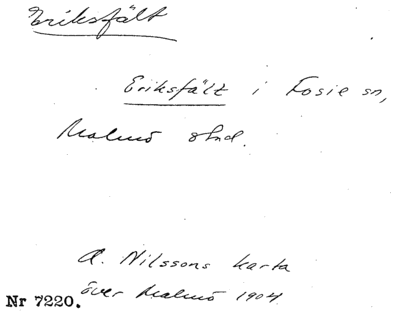 Eriksfält
Eriksfält i Fosie sn,
Malmö stad.
A. Nilssons karta
över Malmö 1904
Nr 7220.